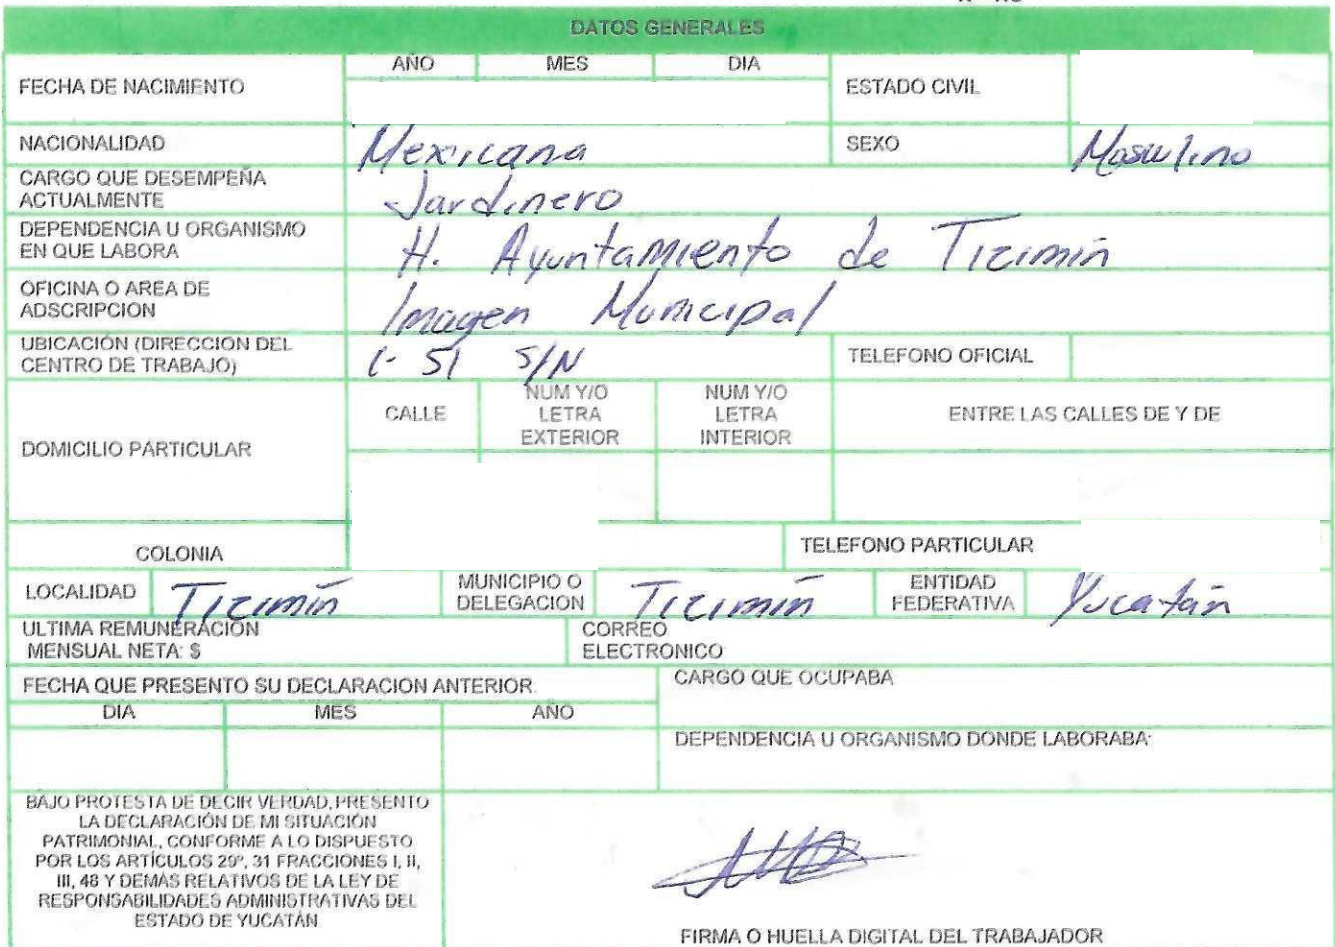 DATOS GENERALES
FECHA DE NACIMIENTO
AÑO MES DIA
ESTADO CIVIL
NACIONALIDAD Mexicana SEXO Masculino
CARGO QUE DESEMPEÑA
ACTUALMENTE Jardinero
DEPENDENCIA U ORGANISMO
EN QUE LABORA H. Ayuntamiento de Tizimín
OFICINA O AREA DE
ADSCRIPCION Imagen Municipal
UBICACIÓN (DIRECCION DEL
CENTRO DE TRABAJO) C- 51 S/N TELEFONO OFICIAL
DOMICILIO PARTICULAR
CALLE
NUM Y/O
LETRA
EXTERIOR
NUM Y/O
LETRA
INTERIOR
ENTRE LAS CALLES DE Y DE
COLONIA TELEFONO PARTICULAR
LOCALIDAD Tizimín
MUNICIPIO O
DELEGACION Tizimín
ENTIDAD
FEDERATIVA Yucatán
ULTIMA REMUNERACIÓN
MENSUAL NETA: $
CORREO
ELECTRONICO
FECHA QUE PRESENTO SU DECLARACION ANTERIOR
DIA MES AÑO
CARGO QUE OCUPABA
DEPENDENCIA U ORGANISMO DONDE LABORABA:
BAJO PROTESTA DE DECIR VERDAD, PRESENTO
LA DECLARACIÓN DE MI SITUACIÓN
PATRIMONIAL, CONFORME A LO DISPUESTO
POR LOS ARTÍCULOS 29º, 31 FRACCIONES I, II,
III, 48 Y DEMÁS RELATIVOS DE LA LEY DE
RESPONSABILIDADES ADMINISTRATIVAS DEL
ESTADO DE YUCATÁN
FIRMA O HUELLA DIGITAL DEL TRABAJADOR